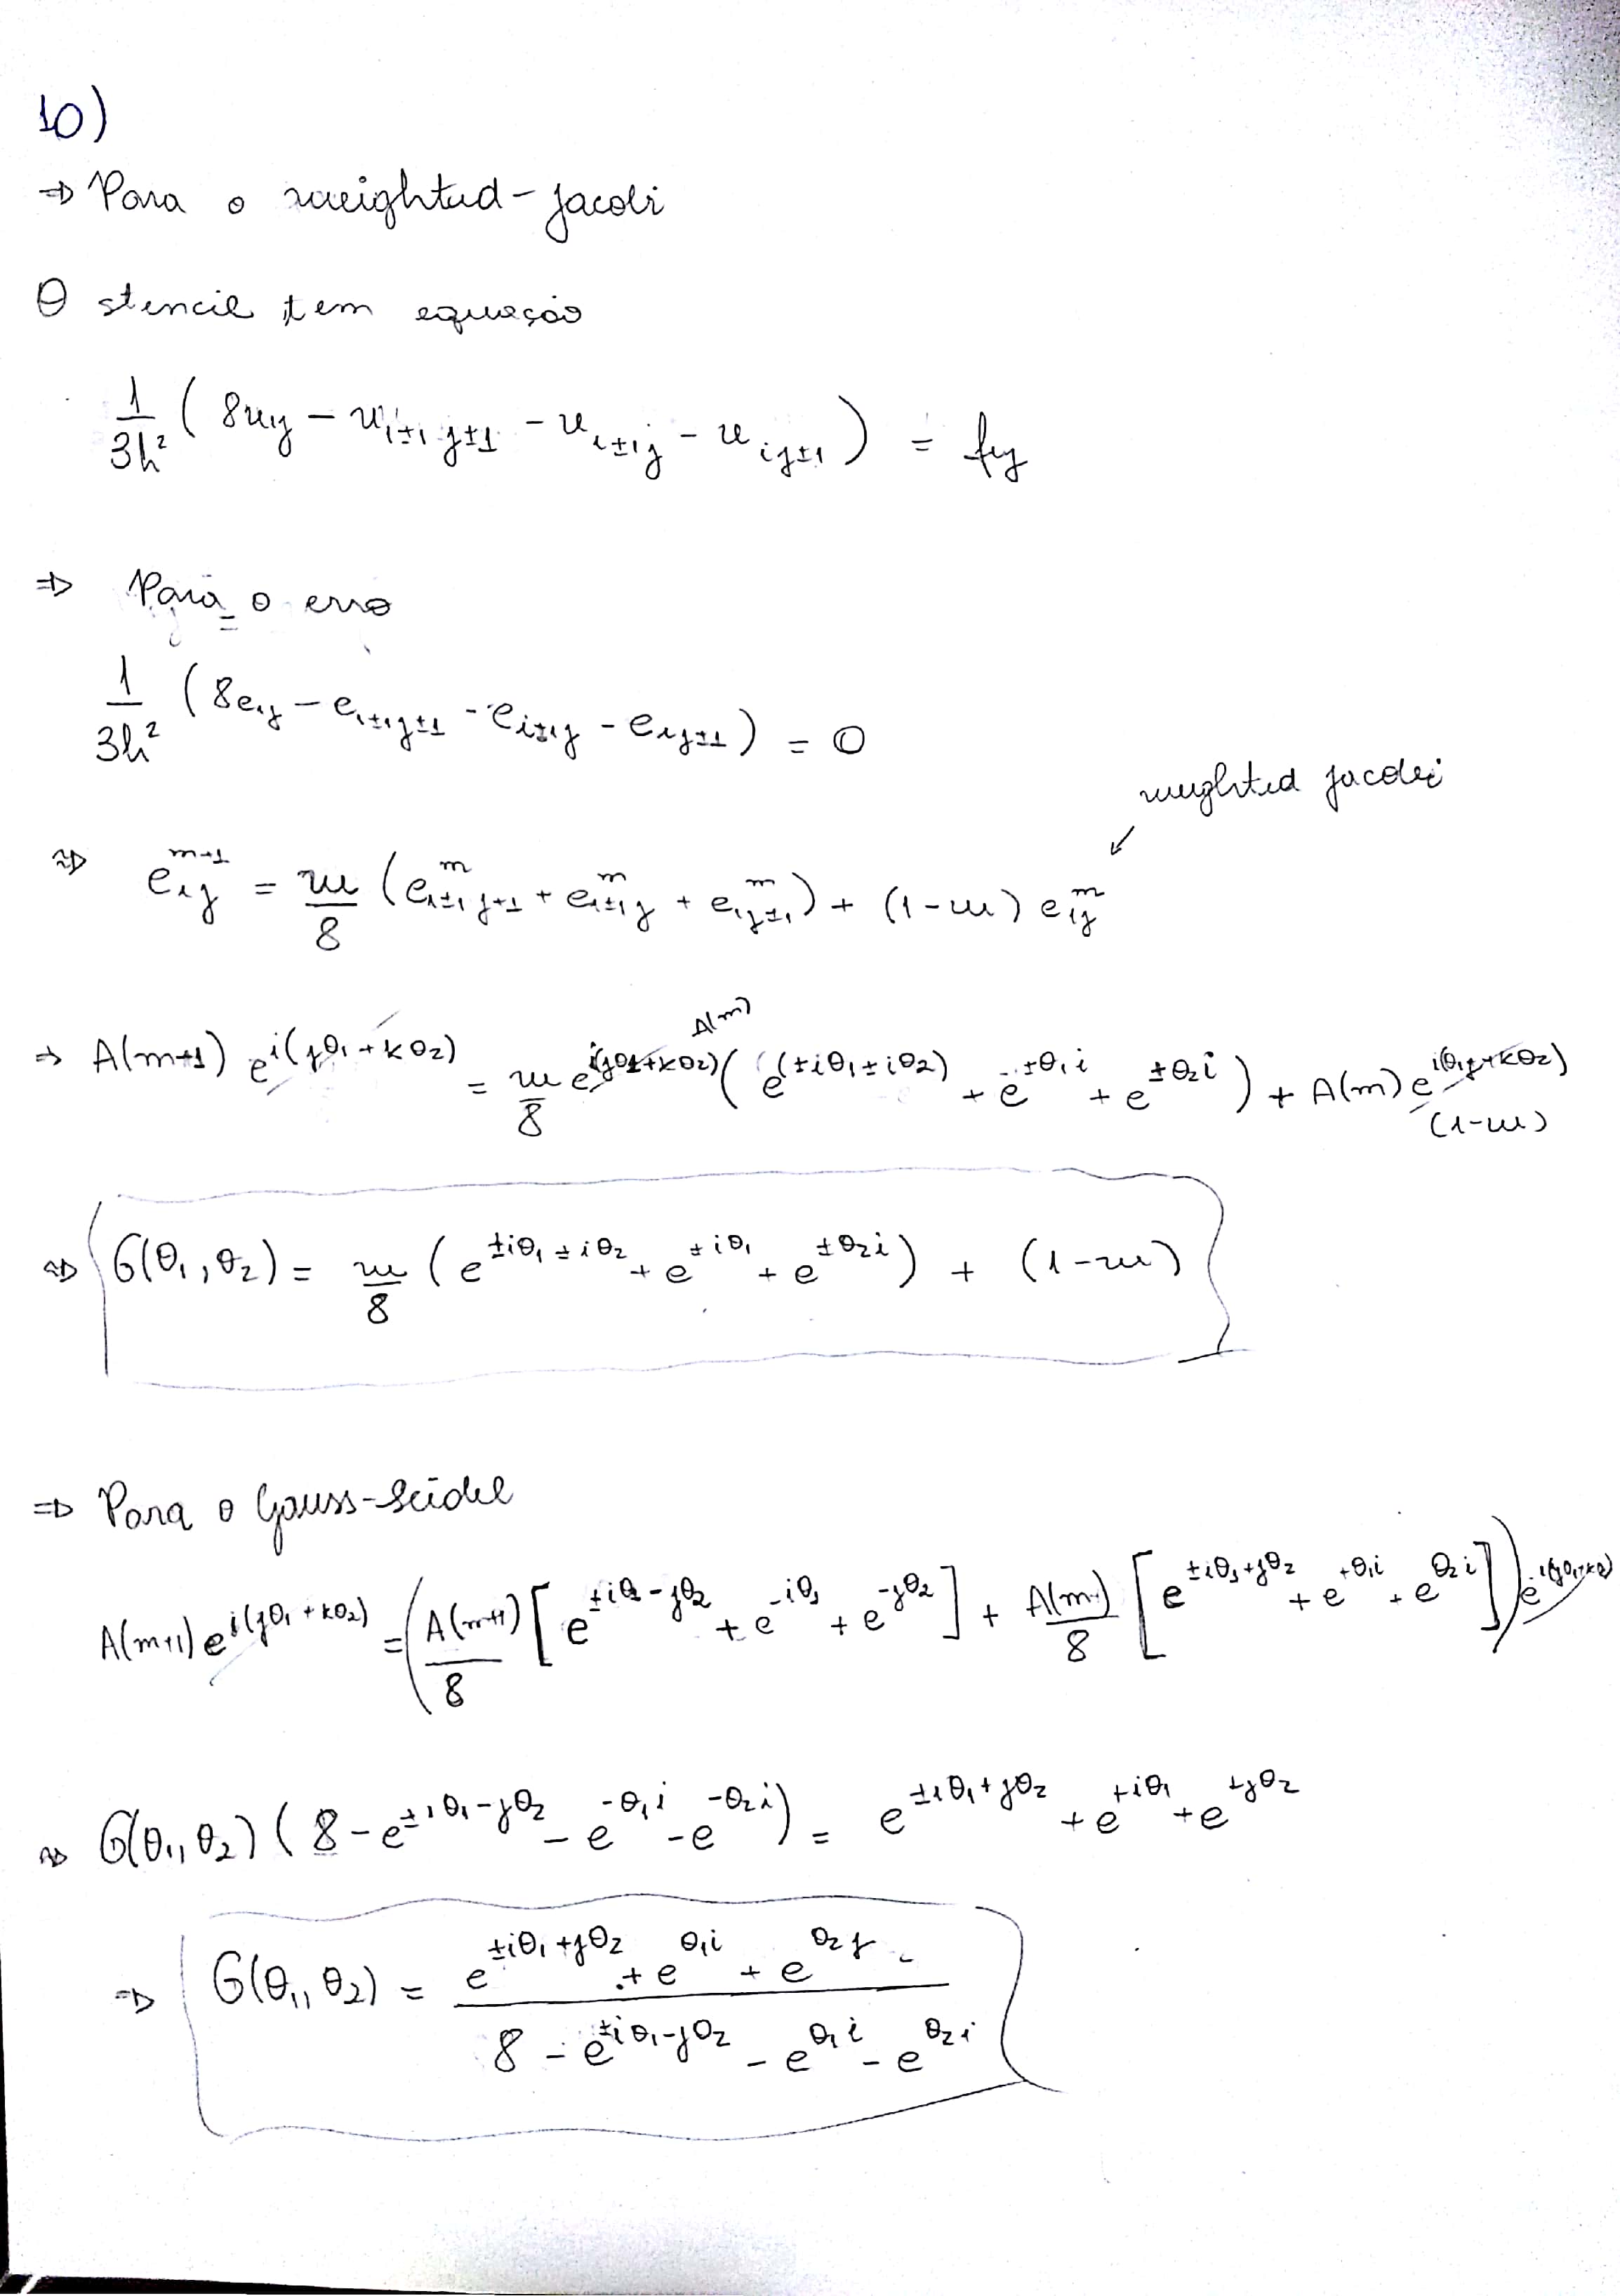 10)
⇒ Para o weighted-jacobi
O stencil tem equação
1/3h² ( 8u_ij − u_i±1 j±1 − u_i±1 j − u_i j±1 ) = f_ij
⇒ Para o erro
1/3h² ( 8e_ij − e_i±1 j±1 − e_i±1 j − e_i j±1 ) = 0
weighted jacobi
⇒ e_ij^m+1 = w/8 ( e_i±1 j±1^m + e_i±1 j^m + e_i j±1^m ) + (1−w) e_ij^m
⇒ A(m+1) e^i(jθ1+kθ2) = w/8 e^i(jθ1+kθ2) A(m) ( e^(±iθ1±iθ2) + e^±θ1i + e^±θ2i ) + A(m) e^i(θ1j+kθ2) (1−w)
⇒ G(θ1,θ2) = w/8 ( e^±iθ1±iθ2 + e^±iθ1 + e^±θ2i ) + (1−w)
⇒ Para o Gauss-Seidel
A(m+1) e^i(jθ1+kθ2) = ( A(m+1)/8 [ e^±iθ1−jθ2 + e^−iθ1 + e^−jθ2 ] + A(m)/8 [ e^±iθ1+jθ2 + e^+θ1i + e^θ2i ] ) e^i(jθ1+kθ2)
⇒ G(θ1,θ2) ( 8 − e^±iθ1−jθ2 − e^−θ1i − e^−θ2i ) = e^±iθ1+jθ2 + e^+iθ1 + e^+jθ2
⇒ G(θ1,θ2) = e^±iθ1+jθ2 + e^θ1i + e^θ2j / 8 − e^±iθ1−jθ2 − e^θ1i − e^θ2i